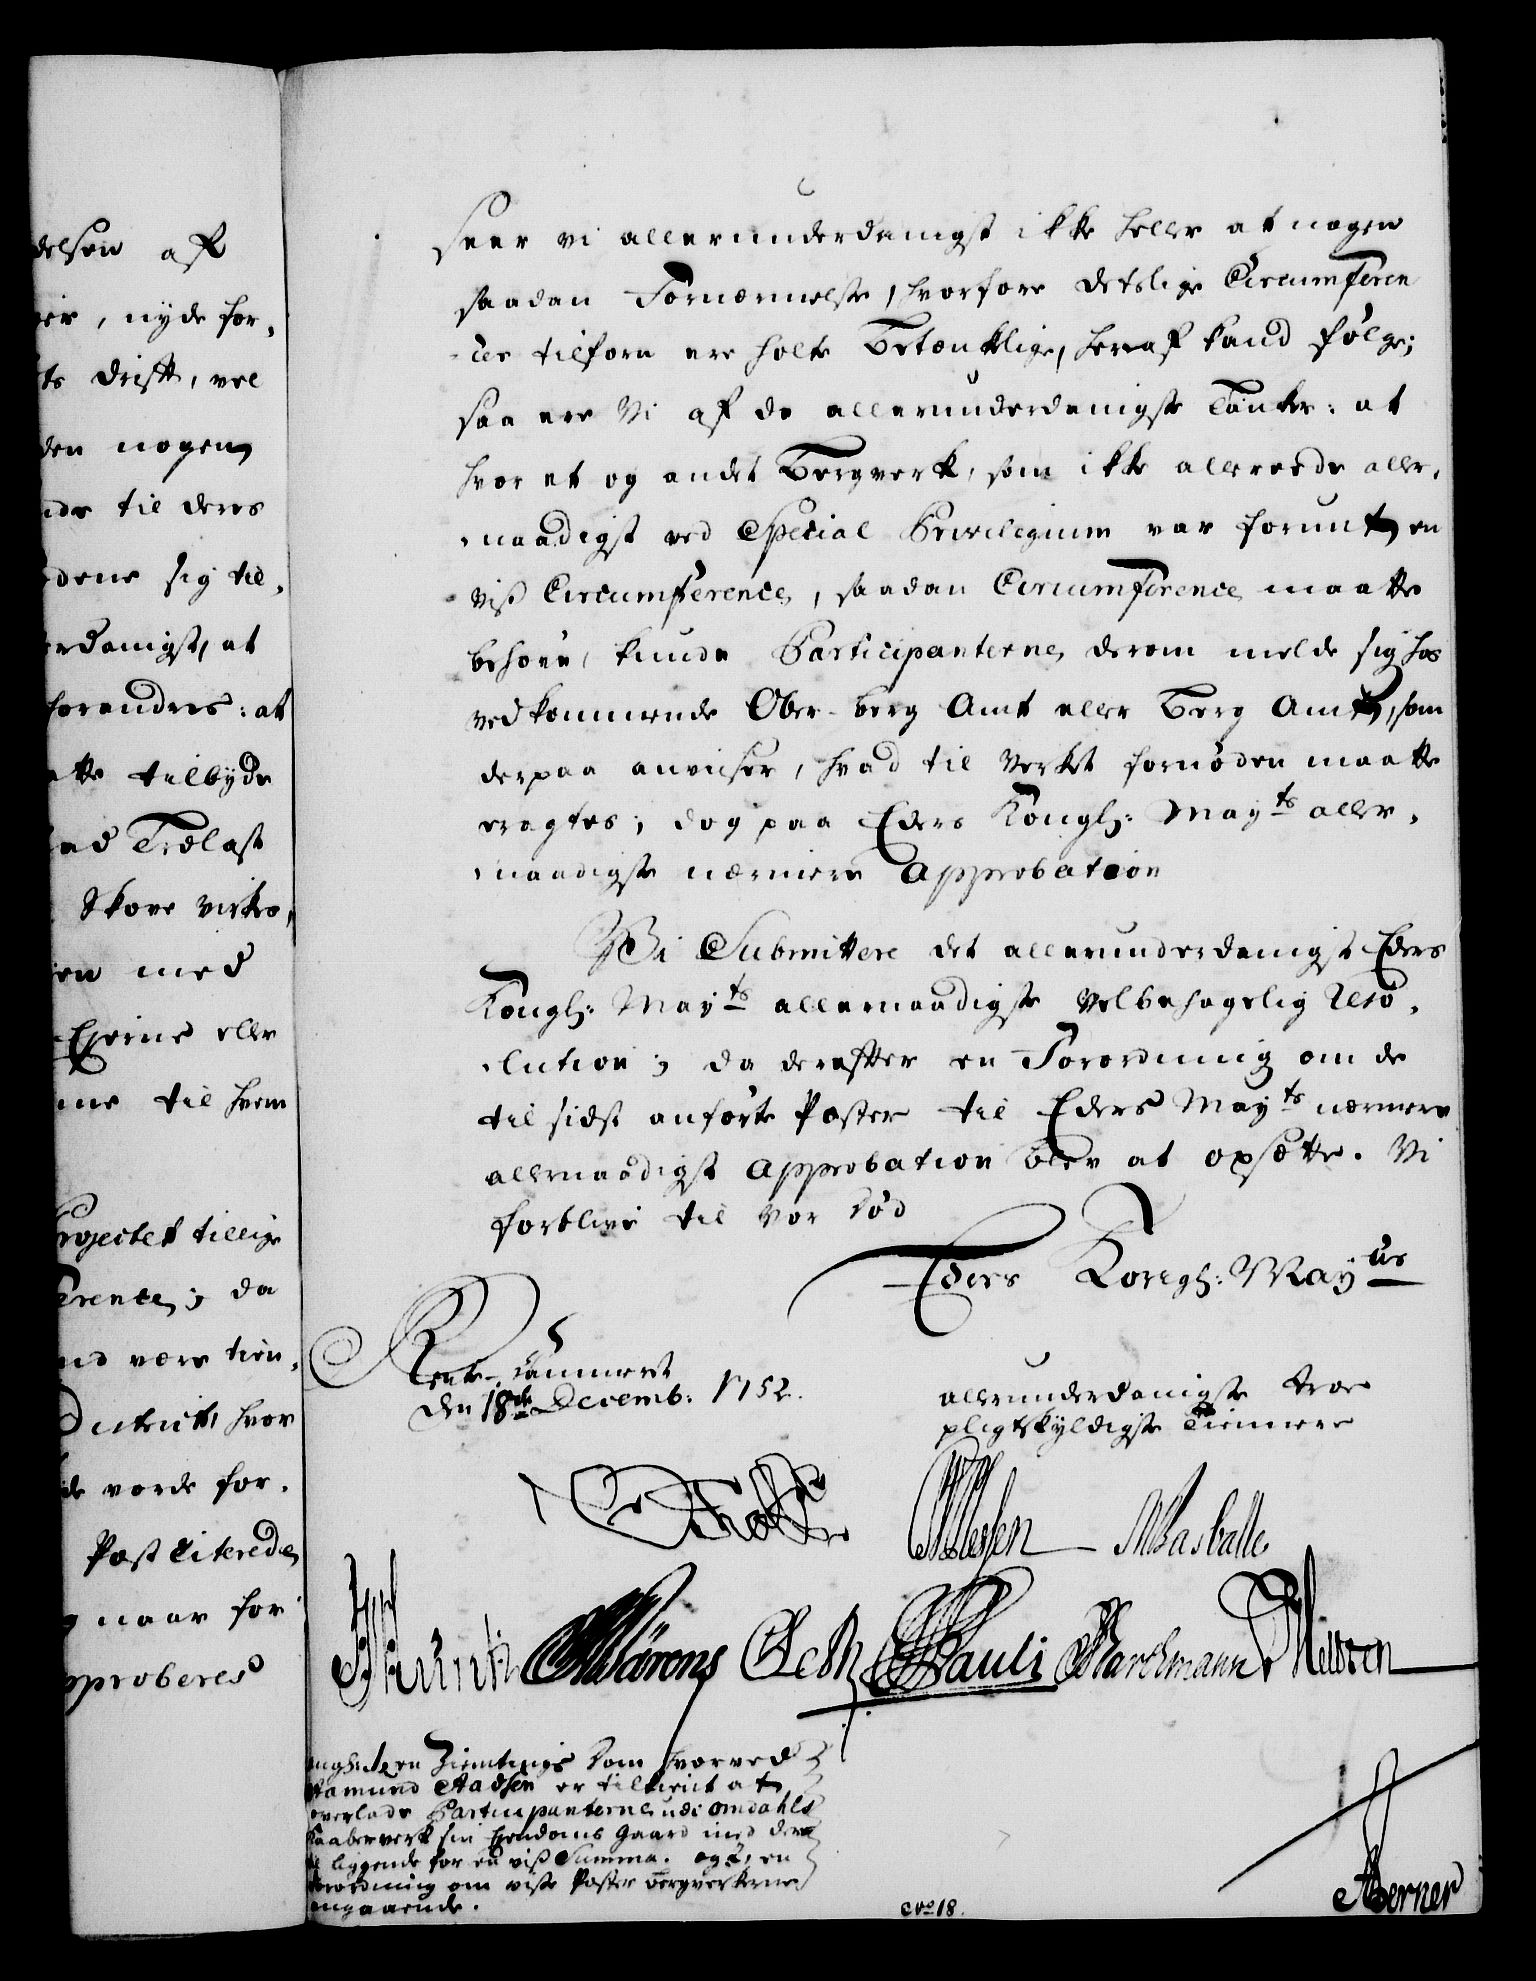 delsen af
nyde for,
ts drift, vel
den nogen
til deres
dene sig til,
danigst, at
forandres: at
atte tilbyde
Trælast
Skove virke,
en med
Ejerne eller
me til hvem
rojectet tillige
ference; da
nd være tien,
District, hvor
de vorde for,
Post Citerede
g naar for
pproberes
seer vi allerunderdanigst ikke heller at nogen
saadan Fornærmelse, hvorfore detslige Circumferen
-cer tilforn ere holte Betænklige, heraf kand følge;
saa ere Vi af de allerunderdanigste Tanker: at
hvor et og andet Bergverk, som ikke allereede aller,
,naadigst ved Special Privilegium var forundt en
viß Circumference, saadan Circumference maatte
behøve, kunde Participanterne derom melde sig hos
vedkommende Ober-berg Amt eller Berg Amt, som
derpaa anviiser, hvad til Verket fornøden maatte
eragtes; dog paa Eders Kongl: Mayts aller,
,naadigste nærmere Approbation
Vi Submittere det allerunderdanigst Eders
Kongl: Mayts allernaadigste Velbehagelig Reso,
,lution; da derefter en Forordning om de
til sidst anførte Poster til Eders Mayts nærmere
allernaadigst Approbation blev at opsætte. Vi
forblive til vor død
Eders Kongl: Mayts
Rente-Cammeret
den 18de Decemb: 1752.
allerunderdanigste troe
pligtskyldigste Tiennere
Pauli
en Ziemtings Dom hvorved
Aamund Aadsen er tilkient at
overlade Participanterne udi Omdahls
Kaaberverk sin Ejendoms Gaard med der
til liggende for en viß Summa. og 2, en
Forordning om visse Poster Bergverkerne
angaaende.
No 18.